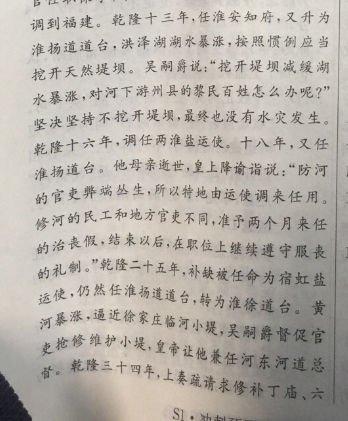 调到福建。乾隆十三年,任淮安知府,又升为
淮扬道道台,洪泽湖湖水暴涨,按照惯例应当
挖开天然堤坝。吴嗣爵说:“挖开堤坝减缓湖
水暴涨,对河下游州县的黎民百姓怎么办呢?”
坚决坚持不挖开堤坝,最终也没有水灾发生。
乾隆十六年,调任两淮盐运使。十八年,又任
淮扬道台。他母亲逝世,皇上降谕诣说:“防河
的官吏弊端丛生,所以特地由运使调来任用。
修河的民工和地方官吏不同,准予两个月来任
的治丧假,结束以后,在职位上继续遵守服丧
的礼制。”乾隆二十五年,补缺被任命为宿虹盐
运使,仍然任淮扬道道台,转为淮徐道台。黄
河暴涨,逼近徐家庄临河小堤,吴嗣爵督促官
吏抢修维护小堤,皇帝让他兼任河东河道总
督。乾隆三十四年,上奏疏请求修补丁庙、六
S1·冲刺